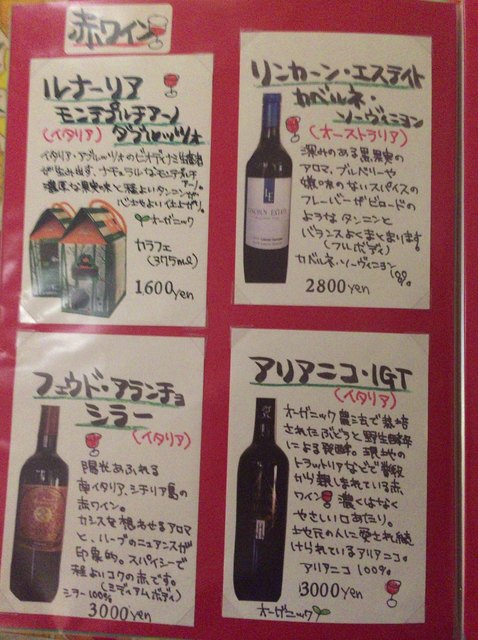 赤ワイン
ルナーリア
モンテプルチアーノ
(イタリア) ダブルッツォ
イタリア・アブルッツォのビオディナミ生産者
が生み出す、ナチュラルなモンテプルチ
アーノ。
濃厚な果実味と程よいタンニンが
心地よい仕上がり。
オーガニック
カラフェ
(375ml)
1600yen
リンカーン・エステイト
カベルネ・
ソーヴィニヨン
(オーストラリア)
深みのある黒果実の
アロマ、ブルベリーや
嫌味のないスパイスの
フレーバーがビロードの
ようなタンニンと
バランスよくまとまります。
(フルボディ)
カベルネ・ソーヴィニヨン
100%
LINCOLN ESTATE
2800yen
フェウド・アランチョ
シラー
(イタリア)
陽光あふれる
南イタリア、シチリア島の
赤ワイン。
カシスを想わせるアロマ
と、ハーブのニュアンスが
印象的。スパイシーで
程よいコクの赤です。
(ミディアムボディ)
シラー100%
3000yen
アリアニコ・IGT
(イタリア)
オーガニック農法で栽培
されたぶどうと野生酵母
による発酵。現地の
トラットリアなどで普段
から親しまれている赤
ワイン 濃くはなく
やさしい口あたり。
地元の人に愛され続
けられているアリアニコ。
アリアニコ 100%
3000yen
オーガニック